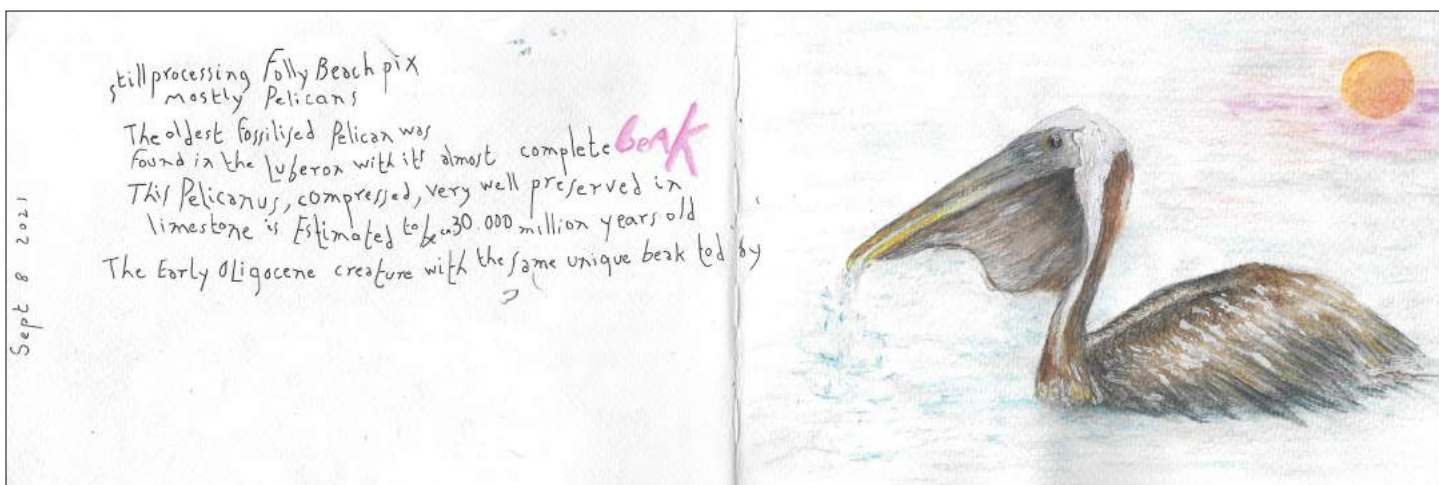 still processing Folly Beach pix
mostly Pelicans
The oldest fossilised Pelican was
found in the Luberon with it's almost complete beak
This Pelicanus, compressed, very well preserved in
limestone is Estimated to be ca 30.000 million years old
The Early Oligocene creature with the same unique beak today
Sept 8 2021